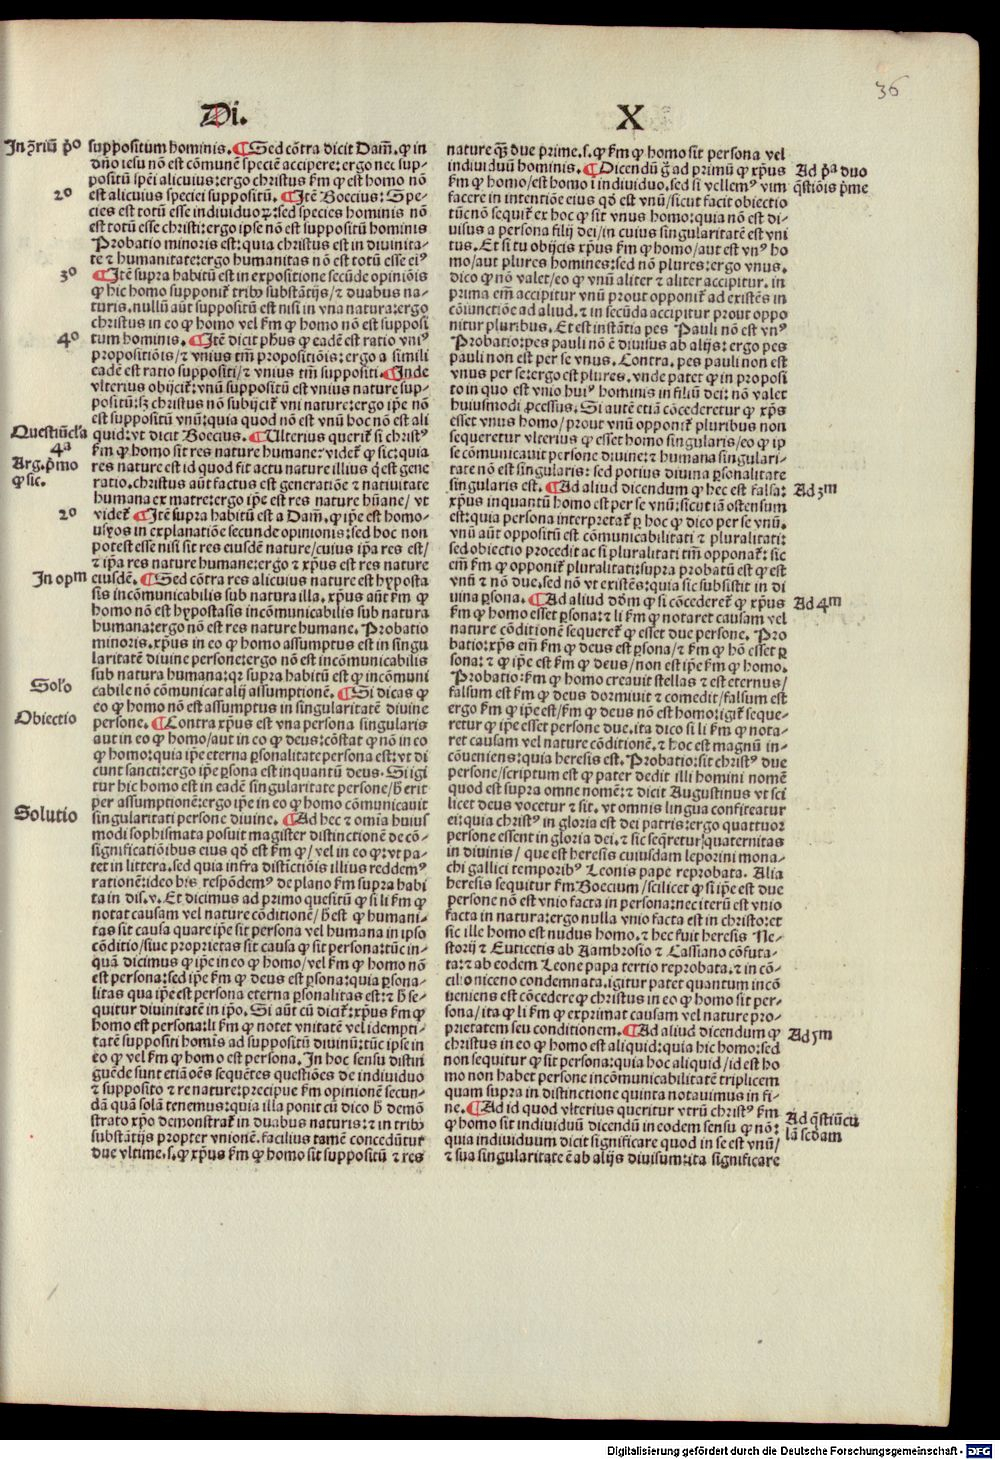 36
Di.
X
In ꝯ̃riũ p̃º
suppositum hominis. ¶ Sed cõtra dicit Dam̃. ꝙ in
dño iesu nõ est cõmunẽ speciẽ accipere: ergo nec sup-
positũ sp̃ei alicuius: ergo christus ẜm ꝙ est homo nõ
2º
est alicuius speciei suppositũ. ¶ Itẽ Boecius: Spe-
cies est totũ esse indiuiduoꝝ: sed species hominis nõ
est totũ esse christi: ergo ipse nõ est suppositũ hominis
Probatio minoris est: quia christus est in diuinita-
te ⁊ humanitate: ergo humanitas nõ est totũ esse eiꝰ
3º
¶ Itẽ supra habitũ est in expositione secũde opiniõis
ꝙ hic homo supponit᷑ tribꝰ substãtijs/ ⁊ duabus na-
turis. nullũ aũt suppositũ est nisi in vna natura: ergo
christus in eo ꝙ homo vel ẜm ꝙ homo nõ est supposi
4º
tum hominis. ¶ Itẽ dicit ph̃us ꝙ eadẽ est ratio vniꝰ
propositiõis/ ⁊ vnius tm̃ propositiõis: ergo a simili
eadẽ est ratio suppositi/ ⁊ vnius tm̃ suppositi. ¶ Inde
vlterius obijcit᷑: vnũ suppositũ est vnius nature sup-
positũ: sꝫ christus nõ subijcit᷑ vni nature: ergo ip̃e nõ
est suppositũ vnũ: quia quod nõ est vnũ hoc nõ est ali
Questiũcl̃a
4ª
quid: vt dicit Boecius. ¶ Ulterius querit᷑ si christꝰ
ẜm ꝙ homo sit res nature humane: videt᷑ ꝙ sic: quia
Arg. p̃mo
ꝙ sic.
res nature est id quod fit actu nature illius q̃ est gene
ratio. christus aũt factus est generatiõe ⁊ natiuitate
humana ex matre: ergo ip̃e est res nature hũane/ vt
2º
videt᷑ ¶ Itẽ supra habitũ est a Dam̃. ꝙ ip̃e est homo-
usyos in explanatiõe secunde opinionis: sed hoc non
potest esse nisi sit res eiusdẽ nature/ cuius ip̃a res est/
⁊ ip̃a res nature humane: ergo ⁊ xp̃us est res nature
In opm̃
eiusdẽ. ¶ Sed cõtra res alicuius nature est hyposta
sis incõmunicabilis sub natura illa. xp̃us aũt ẜm ꝙ
homo nõ est hypostasis incõmunicabilis sub natura
humana: ergo nõ est res nature humane. Probatio
minoris. xp̃us in eo ꝙ homo assumptus est in singu
laritatẽ diuine persone: ergo nõ est incõmunicabilis
sub natura humana: qꝛ supra habitũ est ꝙ incõmuni
Solꝰo
cabile nõ cõmunicat alij assumptionẽ. ¶ Si dicas ꝙ
eo ꝙ homo nõ est assumptus in singularitatẽ diuine
Obiectio
persone. ¶ Contra xp̃us est vna persona singularis
aut in eo ꝙ homo/ aut in eo ꝙ deus: cõstat ꝙ nõ in eo
ꝙ homo: quia ip̃e eterna ꝑsonalitate persona est: vt di
cunt sancti: ergo ip̃e ꝑsona est inquantũ deus. Si igi
tur hic homo est in eadẽ singularitate persone/ h̃ erit
per assumptionẽ: ergo ip̃e in eo ꝙ homo cõmunicauit
Solutio
singularitati persone diuine. ¶ Ad hec ⁊ om̃ia huius
modi sophismata posuit magister distinctionẽ de cõ-
significatiõibus eius qð est ẜm ꝙ/ vel in eo ꝙ: vt pa-
tet in littera. sed quia infra distĩctiõis illius reddemꝰ
rationẽ: ideo his respõdemꝰ de plano ẜm supra habi
ta in dis. v. Et dicimus ad primo quesitũ ꝙ si li ẜm ꝙ
notat causam vel nature cõditionẽ/ h̃ est ꝙ humani-
tas sit causa quare ip̃e sit persona vel humana in ipso
cõditio/ siue proprietas sit causa ꝙ sit persona: tũc in-
quã dicimus ꝙ ip̃e in eo ꝙ homo/ vel ẜm ꝙ homo nõ
est persona: sed ip̃e ẜm ꝙ deus est ꝑsona: quia ꝑsona-
litas qua ip̃e est persona eterna ꝑsonalitas est: ⁊ h̃ se-
quitur diuinitatẽ in ip̃o. Si aũt cũ dicit᷑: xp̃us ẜm ꝙ
homo est persona: li ẜm ꝙ notet vnitatẽ vel idempti-
tatẽ suppositi homĩs ad suppositũ diuinũ: tũc ipse in
eo ꝙ vel ẜm ꝙ homo est persona. In hoc sensu distin
guẽde sunt etiã oẽs sequẽtes questiões de indiuiduo
⁊ supposito ⁊ re nature: precipue ẜm opinionẽ secun-
dã quã solã tenemus: quia illa ponit cũ dico h̃ demõ
strato xp̃o demonstrat᷑ in duabus naturis: ⁊ in tribꝰ
substãtijs propter vnionẽ. facilius tamẽ concedũtur
due vltime. s. ꝙ xp̃us ẜm ꝙ homo sit suppositũ ⁊ res
nature qꝫ due prime. s. ꝙ ẜm ꝙ homo sit persona vel
Ad p̃ª duo
q̃stiõis p̃me
indiuiduũ hominis. ¶ Dicendũ g̃ ad primũ ꝙ xp̃us
ẜm ꝙ homo/ est homo ĩ indiuiduo. sed si vellemꝰ vim
facere in intentiõe eius qð est vnũ/ sicut facit obiectio
tũc nõ sequit᷑ ex hoc ꝙ sit vnus homo: quia nõ est di-
uisus a persona filij dei/ in cuius singularitatẽ est vni
tus. Et si tu obijcis xp̃us ẜm ꝙ homo/ aut est vnꝰ ho
mo/ aut plures homines: sed nõ plures: ergo vnus.
dico ꝙ nõ valet/ eo ꝙ vnũ aliter ⁊ aliter accipitur. in
prima em̃ accipitur vnũ prout opponit᷑ ad existẽs in
cõiunctiõe ad aliud. ⁊ in secũda accipitur prout oppo
nitur pluribus. Et est instãtia pes Pauli nõ est vnꝰ
Probatio: pes pauli nõ ẽ diuisus ab alijs: ergo pes
pauli non est per se vnus. Contra. pes pauli non est
vnus per se: ergo est plures. vnde patet ꝙ in proposi
to in quo est vnio huiꝰ hominis in filiũ dei: nõ valet
huiusmodi ꝓcessus. Si autẽ etiã cõcederetur ꝙ xp̃s
esset vnus homo/ prout vnũ opponit᷑ pluribus non
sequeretur vlterius ꝙ esset homo singularis/ eo ꝙ ip
se cõmunicauit persone diuine: ⁊ humana singulari-
tate nõ est singularis: sed potius diuina ꝑsonalitate
Ad 3m
singularis est. ¶ Ad aliud dicendum ꝙ hec est falsa:
xp̃us inquantũ homo est per se vnũ: sicut iã ostensum
est: quia persona interpretat᷑ ꝑ hoc ꝙ dico per se vnũ.
vnũ aũt oppositũ est cõmunicabilitati ⁊ pluralitati:
sed obiectio procedit ac si pluralitati tm̃ opponat᷑: sic
em̃ ẜm ꝙ opponit᷑ pluralitati: supra probatũ est ꝙ est
vnũ ⁊ nõ due. sed nõ vt existẽs: quia sic subsistit in di
Ad 4m
uina ꝑsona. ¶ Ad aliud ðõm ꝙ si cõcederet᷑ ꝙ xp̃us
ẜm ꝙ homo esset ꝑsona: ⁊ li ẜm ꝙ notaret causam vel
nature cõditionẽ sequeret᷑ ꝙ esset due persone. Pro
batio: xp̃s em̃ ẜm ꝙ deus est ꝑsona/ ⁊ ẜm ꝙ hõ esset ꝑ
sona: ⁊ ꝙ ip̃e est ẜm ꝙ deus/ non est ip̃e ẜm ꝙ homo.
Probatio: ẜm ꝙ homo creauit stellas ⁊ est eternus/
falsum est ẜm ꝙ deus dormiuit ⁊ comedit/ falsum est
ergo ẜm ꝙ ip̃e est/ ẜm ꝙ deus nõ est homo: igit᷑ seque-
retur ꝙ ip̃e esset persone due. ita dico si li ẜm ꝙ nota-
ret causam vel nature cõditionẽ. ⁊ hoc est magnũ in-
cõueniens: quia heresis est. Probatio: sit christꝰ due
persone/ scriptum est ꝙ pater dedit illi homini nomẽ
quod est supra omne nomẽ: ⁊ dicit Augustinus vt sci
licet deus vocetur ⁊ sit. vt omnis lingua confiteatur
ei: quia christꝰ in gloria est dei patris: ergo quattuor
persone essent in gloria dei. ⁊ sic seq̃retur quaternitas
in diuinis/ que est heresis cuiusdam leporini mona-
chi gallici temporibꝰ Leonis pape reprobata. Alia
heresis sequitur ẜm Boecium/ scilicet ꝙ si ip̃e est due
persone nõ est vnio facta in persona: nec iterũ est vnio
facta in natura: ergo nulla vnio facta est in christo: et
sic ille homo est nudus homo. ⁊ hec fuit heresis Ne-
storij ⁊ Euticetis ab Aambrosio ⁊ Cassiano cõfuta-
ta: ⁊ ab eodem Leone papa tertio reprobata. ⁊ in cõ-
cilio niceno condemnata. igitur patet quantum incõ
ueniens est cõcedere ꝙ christus in eo ꝙ homo sit per-
sona/ ita ꝙ li ẜm ꝙ exprimat causam vel nature pro-
Ad 5m
prietatem seu conditionem. ¶ Ad aliud dicendum ꝙ
christus in eo ꝙ homo est aliquid: quia hic homo: sed
non sequitur ꝙ sit persona: quia hoc aliquid/ id est ho
mo non habet persone incõmunicabilitatẽ triplicem
quam supra in distinctione quinta notauimus in fi-
ne. ¶ Ad id quod vlterius queritur vtrũ christꝰ ẜm
Ad q̃stiũcu
lã scðam
ꝙ homo sit indiuiduũ dicendũ in eodem sensu ꝙ nõ:
quia indiuiduum dicit significare quod in se est vnũ/
⁊ sua singularitate ẽ ab alijs diuisum: ita significare
Digitalisierung gefördert durch die Deutsche Forschungsgemeinschaft - DFG